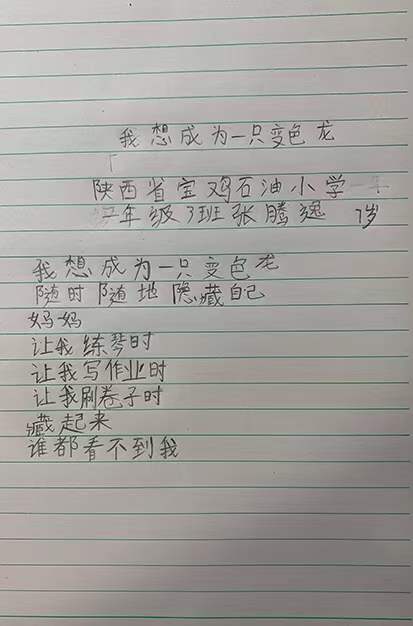 我想成为一只变色龙
陕西省宝鸡石油小学
年级3班张腾逸 7岁
我想成为一只变色龙
随时随地隐藏自己
妈妈
让我练琴时
让我写作业时
让我刷卷子时
藏起来
谁都看不到我